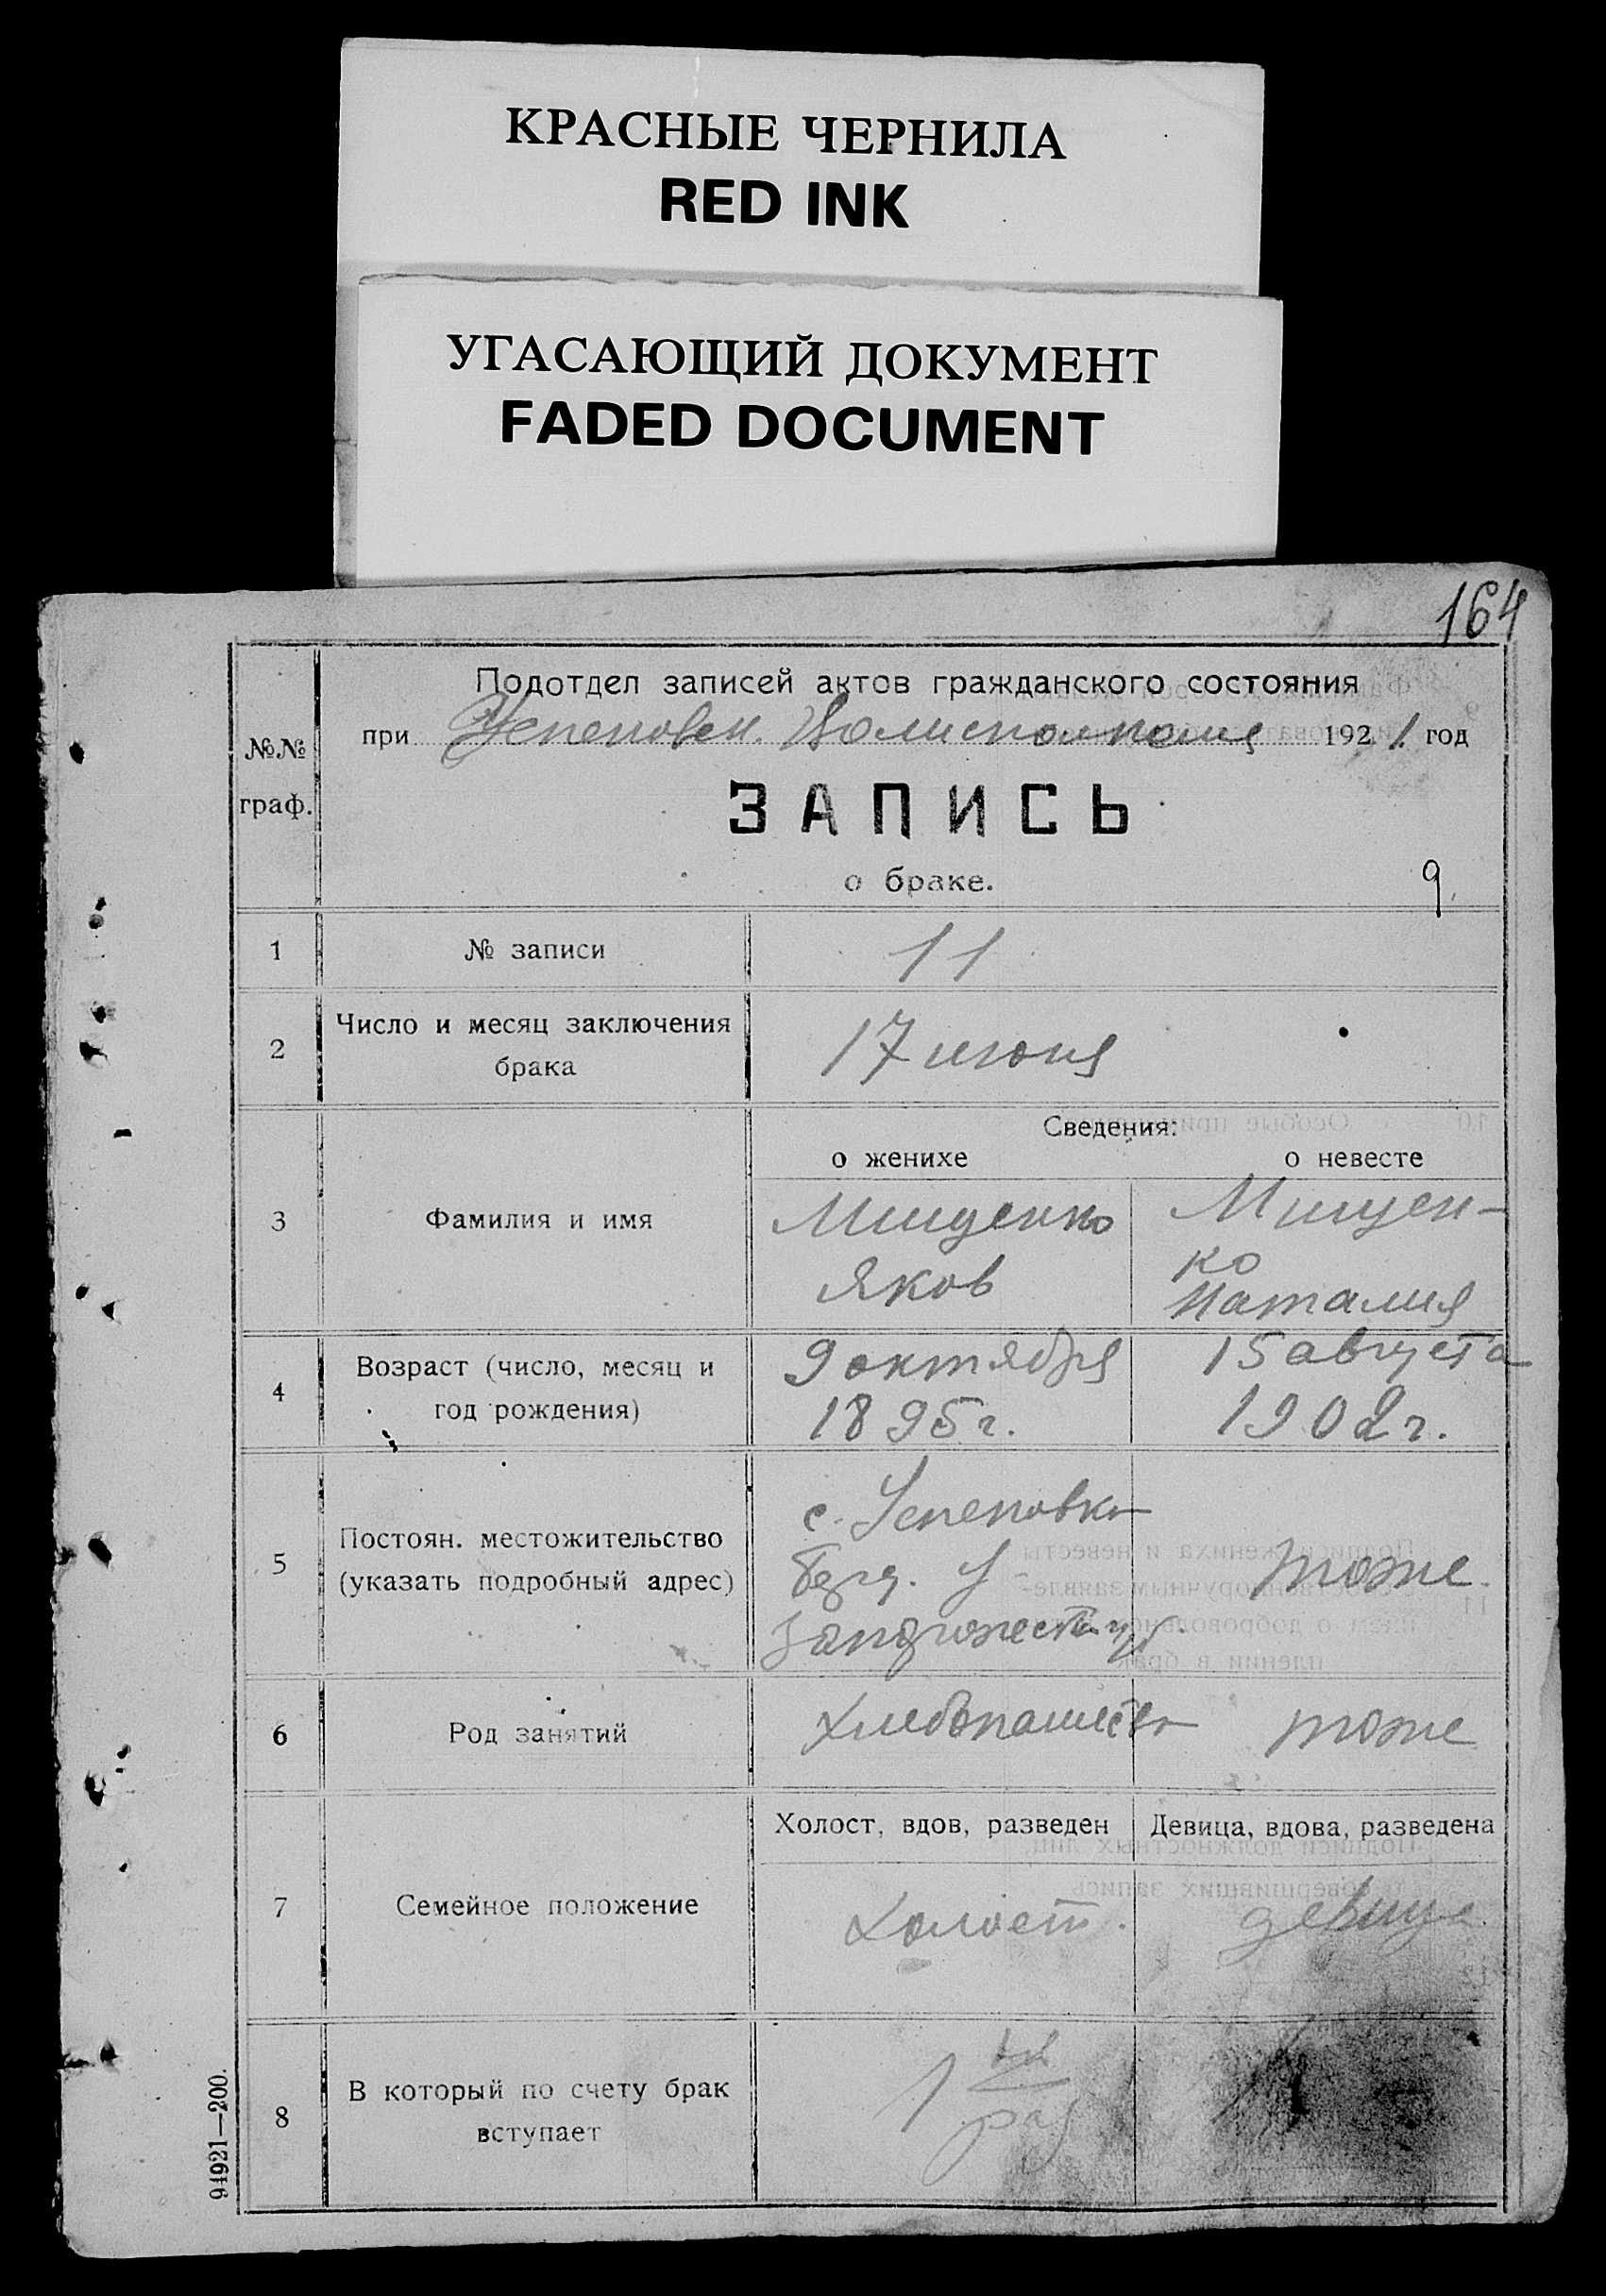 КРАСНЫЕ ЧЕРНИЛА
RED INK
УГАСАЮЩИЙ ДОКУМЕНТ
FADED DOCUMENT
164
Подотдел записей актов гражданского состояния
при Цепеповск. Волисполкоме 1921 год
№№
граф.
ЗАПИСЬ
о браке.
9
1 № записи 11
2 Число и месяц заключения
брака
17 июня
Сведения:
о женихе о невесте
3 Фамилия и имя
Мищенко
Яков
Мищен-
ко
Наталия
4 Возраст (число, месяц и
год рождения)
9 октября
1895 г.
15 августа
1902 г.
5 Постоян. местожительство
(указать подробный адрес)
с.
тоже
6 Род занятий Хлебопашество тоже
Холост, вдов, разведен Девица, вдова, разведена
7 Семейное положение холост. девица
8 В который по счету брак
вступает
1 ый
раз
1
94921—200.